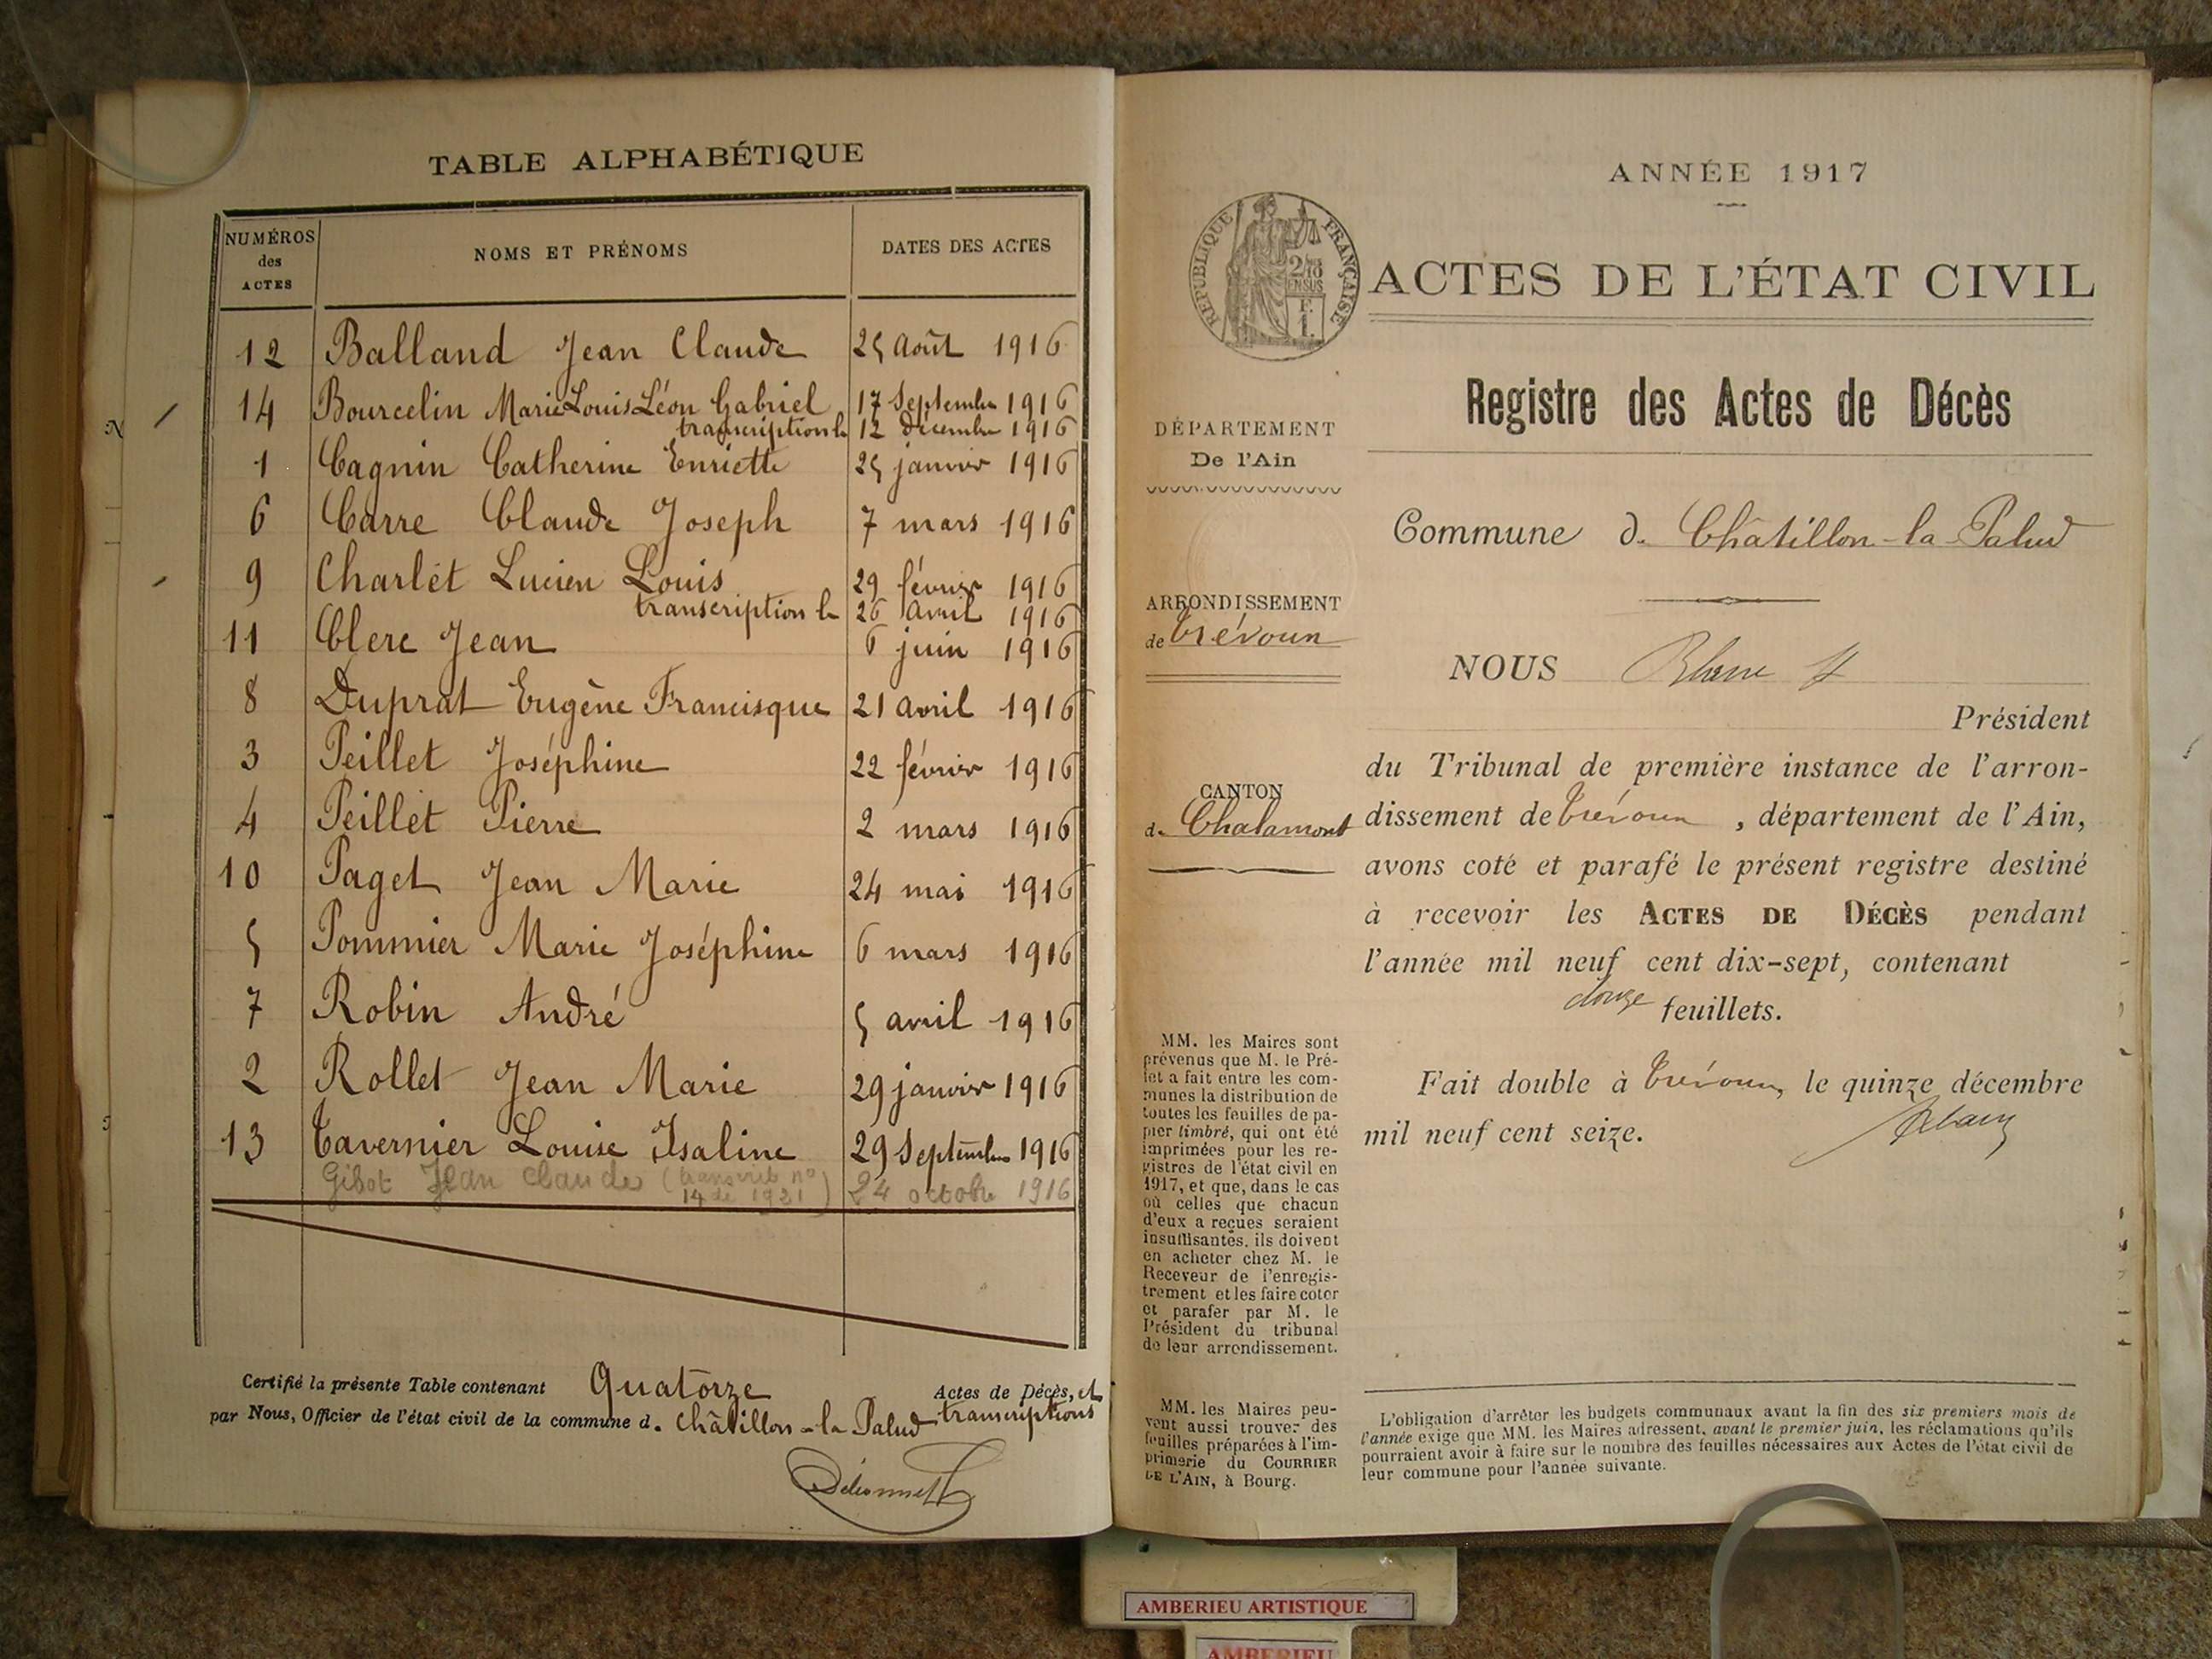 TABLE ALPHABÉTIQUE
NUMÉROS des ACTES
NOMS ET PRÉNOMS
DATES DES ACTES
12 Balland Jean Claude 25 Août 1916
14 Bourcelin Marie Louis Léon Gabriel 17 Septembre 1916
transcription le 12 décembre 1916
1 Cagnin Catherine Enriette 25 janvier 1916
6 Carre Claude Joseph 7 mars 1916
9 Charlet Lucien Louis 29 février 1916
transcription le 26 Avril 1916
11 Clerc Jean 6 juin 1916
8 Duprat Eugène Francisque 21 avril 1916
3 Peillet Joséphine 22 février 1916
4 Peillet Pierre 2 mars 1916
10 Paget Jean Marie 24 mai 1916
5 Pommier Marie Joséphine 6 mars 1916
7 Robin André 5 avril 1916
2 Rollet Jean Marie 29 janvier 1916
13 Tavernier Louise Isaline 29 Septembre 1916
Gibot Jean Claude (transcrit n° 14 de 1921) 24 octobre 1916
Certifié la présente Table contenant Quatorze Actes de Décès, et transcriptions
par Nous, Officier de l'état civil de la commune de Châtillon-la-Palud
ANNÉE 1917
RÉPUBLIQUE FRANÇAISE
2/10 EN SUS
F. 1.
ACTES DE L'ÉTAT CIVIL
Registre des Actes de Décès
DÉPARTEMENT
De l'Ain
Commune de Châtillon-la-Palud
ARRONDISSEMENT
de Trévoux
NOUS
Président
du Tribunal de première instance de l'arron-
dissement de Trévoux, département de l'Ain,
avons coté et parafé le présent registre destiné
à recevoir les ACTES DE DÉCÈS pendant
l'année mil neuf cent dix-sept, contenant
douze feuillets.
Fait double à Trévoux, le quinze décembre
mil neuf cent seize.
CANTON
de Chalamont
MM. les Maires sont
prévenus que M. le Pré-
fet a fait entre les com-
munes la distribution de
toutes les feuilles de pa-
pier timbré, qui ont été
imprimées pour les re-
gistres de l'état civil en
1917, et que, dans le cas
où celles que chacun
d'eux a reçues seraient
insuffisantes, ils doivent
en acheter chez M. le
Receveur de l'enregis-
trement et les faire coter
et parafer par M. le
Président du tribunal
de leur arrondissement.
MM. les Maires peu-
vent aussi trouver des
feuilles préparées à l'im-
primerie du COURRIER
DE L'AIN, à Bourg.
L'obligation d'arrêter les budgets communaux avant la fin des six premiers mois de
l'année exige que MM. les Maires adressent, avant le premier juin, les réclamations qu'ils
pourraient avoir à faire sur le nombre des feuilles nécessaires aux Actes de l'état civil de
leur commune pour l'année suivante.
AMBERIEU ARTISTIQUE
AMBERIEU